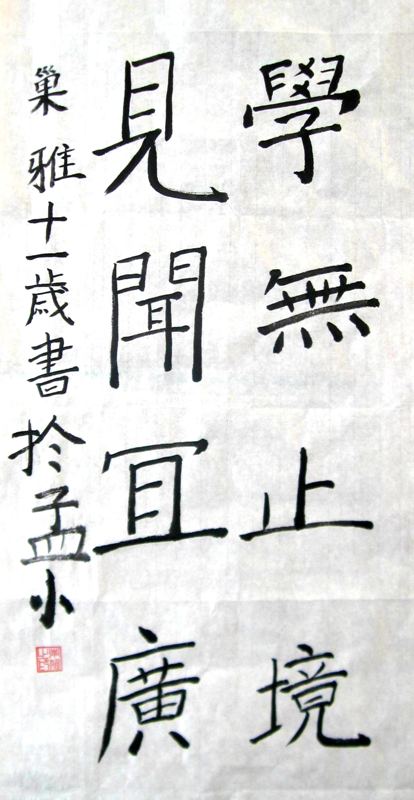 學無止境
見聞宜廣
巢雅十一歳書於孟小